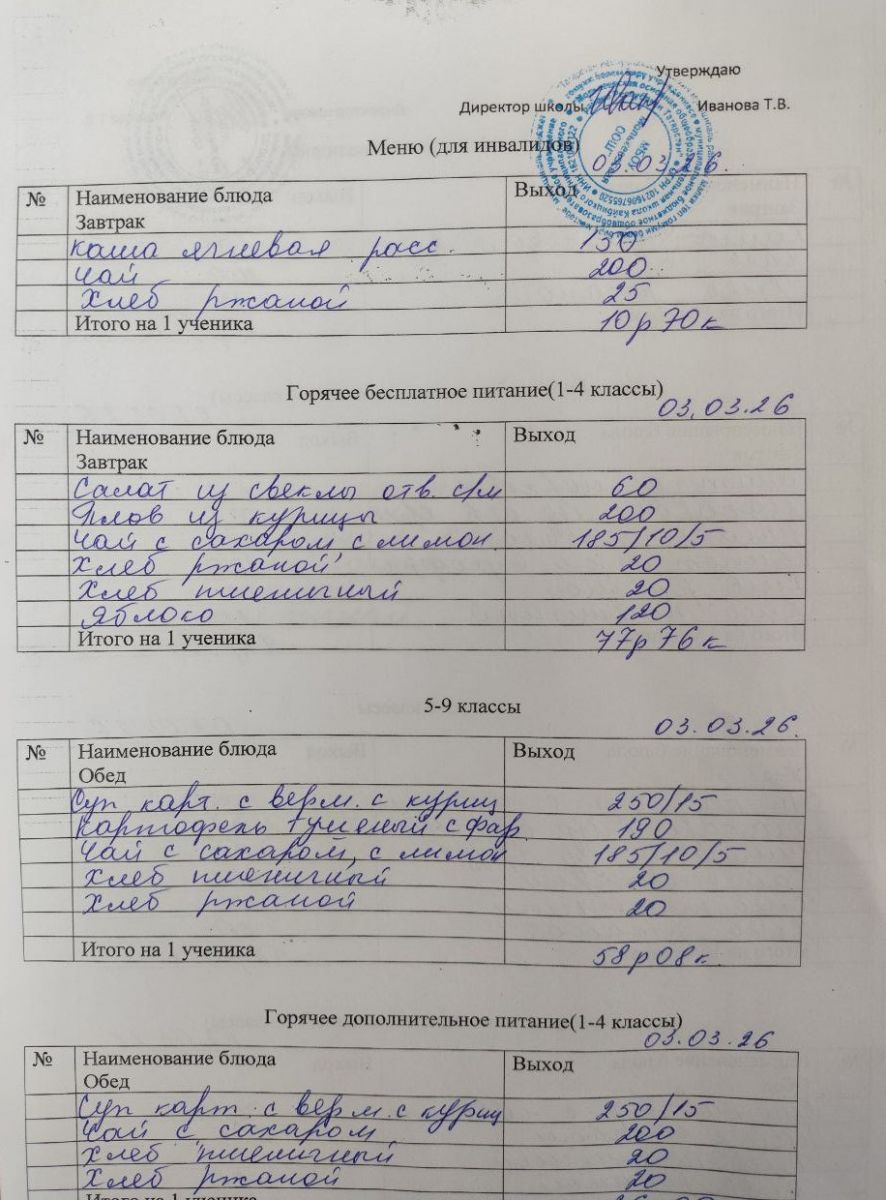 Утверждаю
Директор школы Иванова Т.В.
Меню (для инвалидов)
03.03.26.
№ Наименование блюда Выход
Завтрак
Каша ячневая расс. 150
Чай 200
Хлеб ржаной 25
Итого на 1 ученика 10р 70к
Горячее бесплатное питание(1-4 классы)
03.03.26
№ Наименование блюда Выход
Завтрак
Салат из свеклы отв. с/м 60
Плов из курицы 200
Чай с сахаром, с лимон. 185/10/5
Хлеб ржаной 20
Хлеб пшеничный 20
Яблоко 120
Итого на 1 ученика 77р 76к
5-9 классы
03.03.26.
№ Наименование блюда Выход
Обед
Суп карт. с верм. с куриц 250/15
Картофель тушеный с фар. 190
Чай с сахаром, с лимон 185/10/5
Хлеб пшеничный 20
Хлеб ржаной 20
Итого на 1 ученика 58р 08к.
Горячее дополнительное питание(1-4 классы)
03.03.26
№ Наименование блюда Выход
Обед
Суп карт. с верм. с куриц 250/15
Чай с сахаром 200
Хлеб пшеничный 20
Хлеб ржаной 20
Итого на 1 ученика